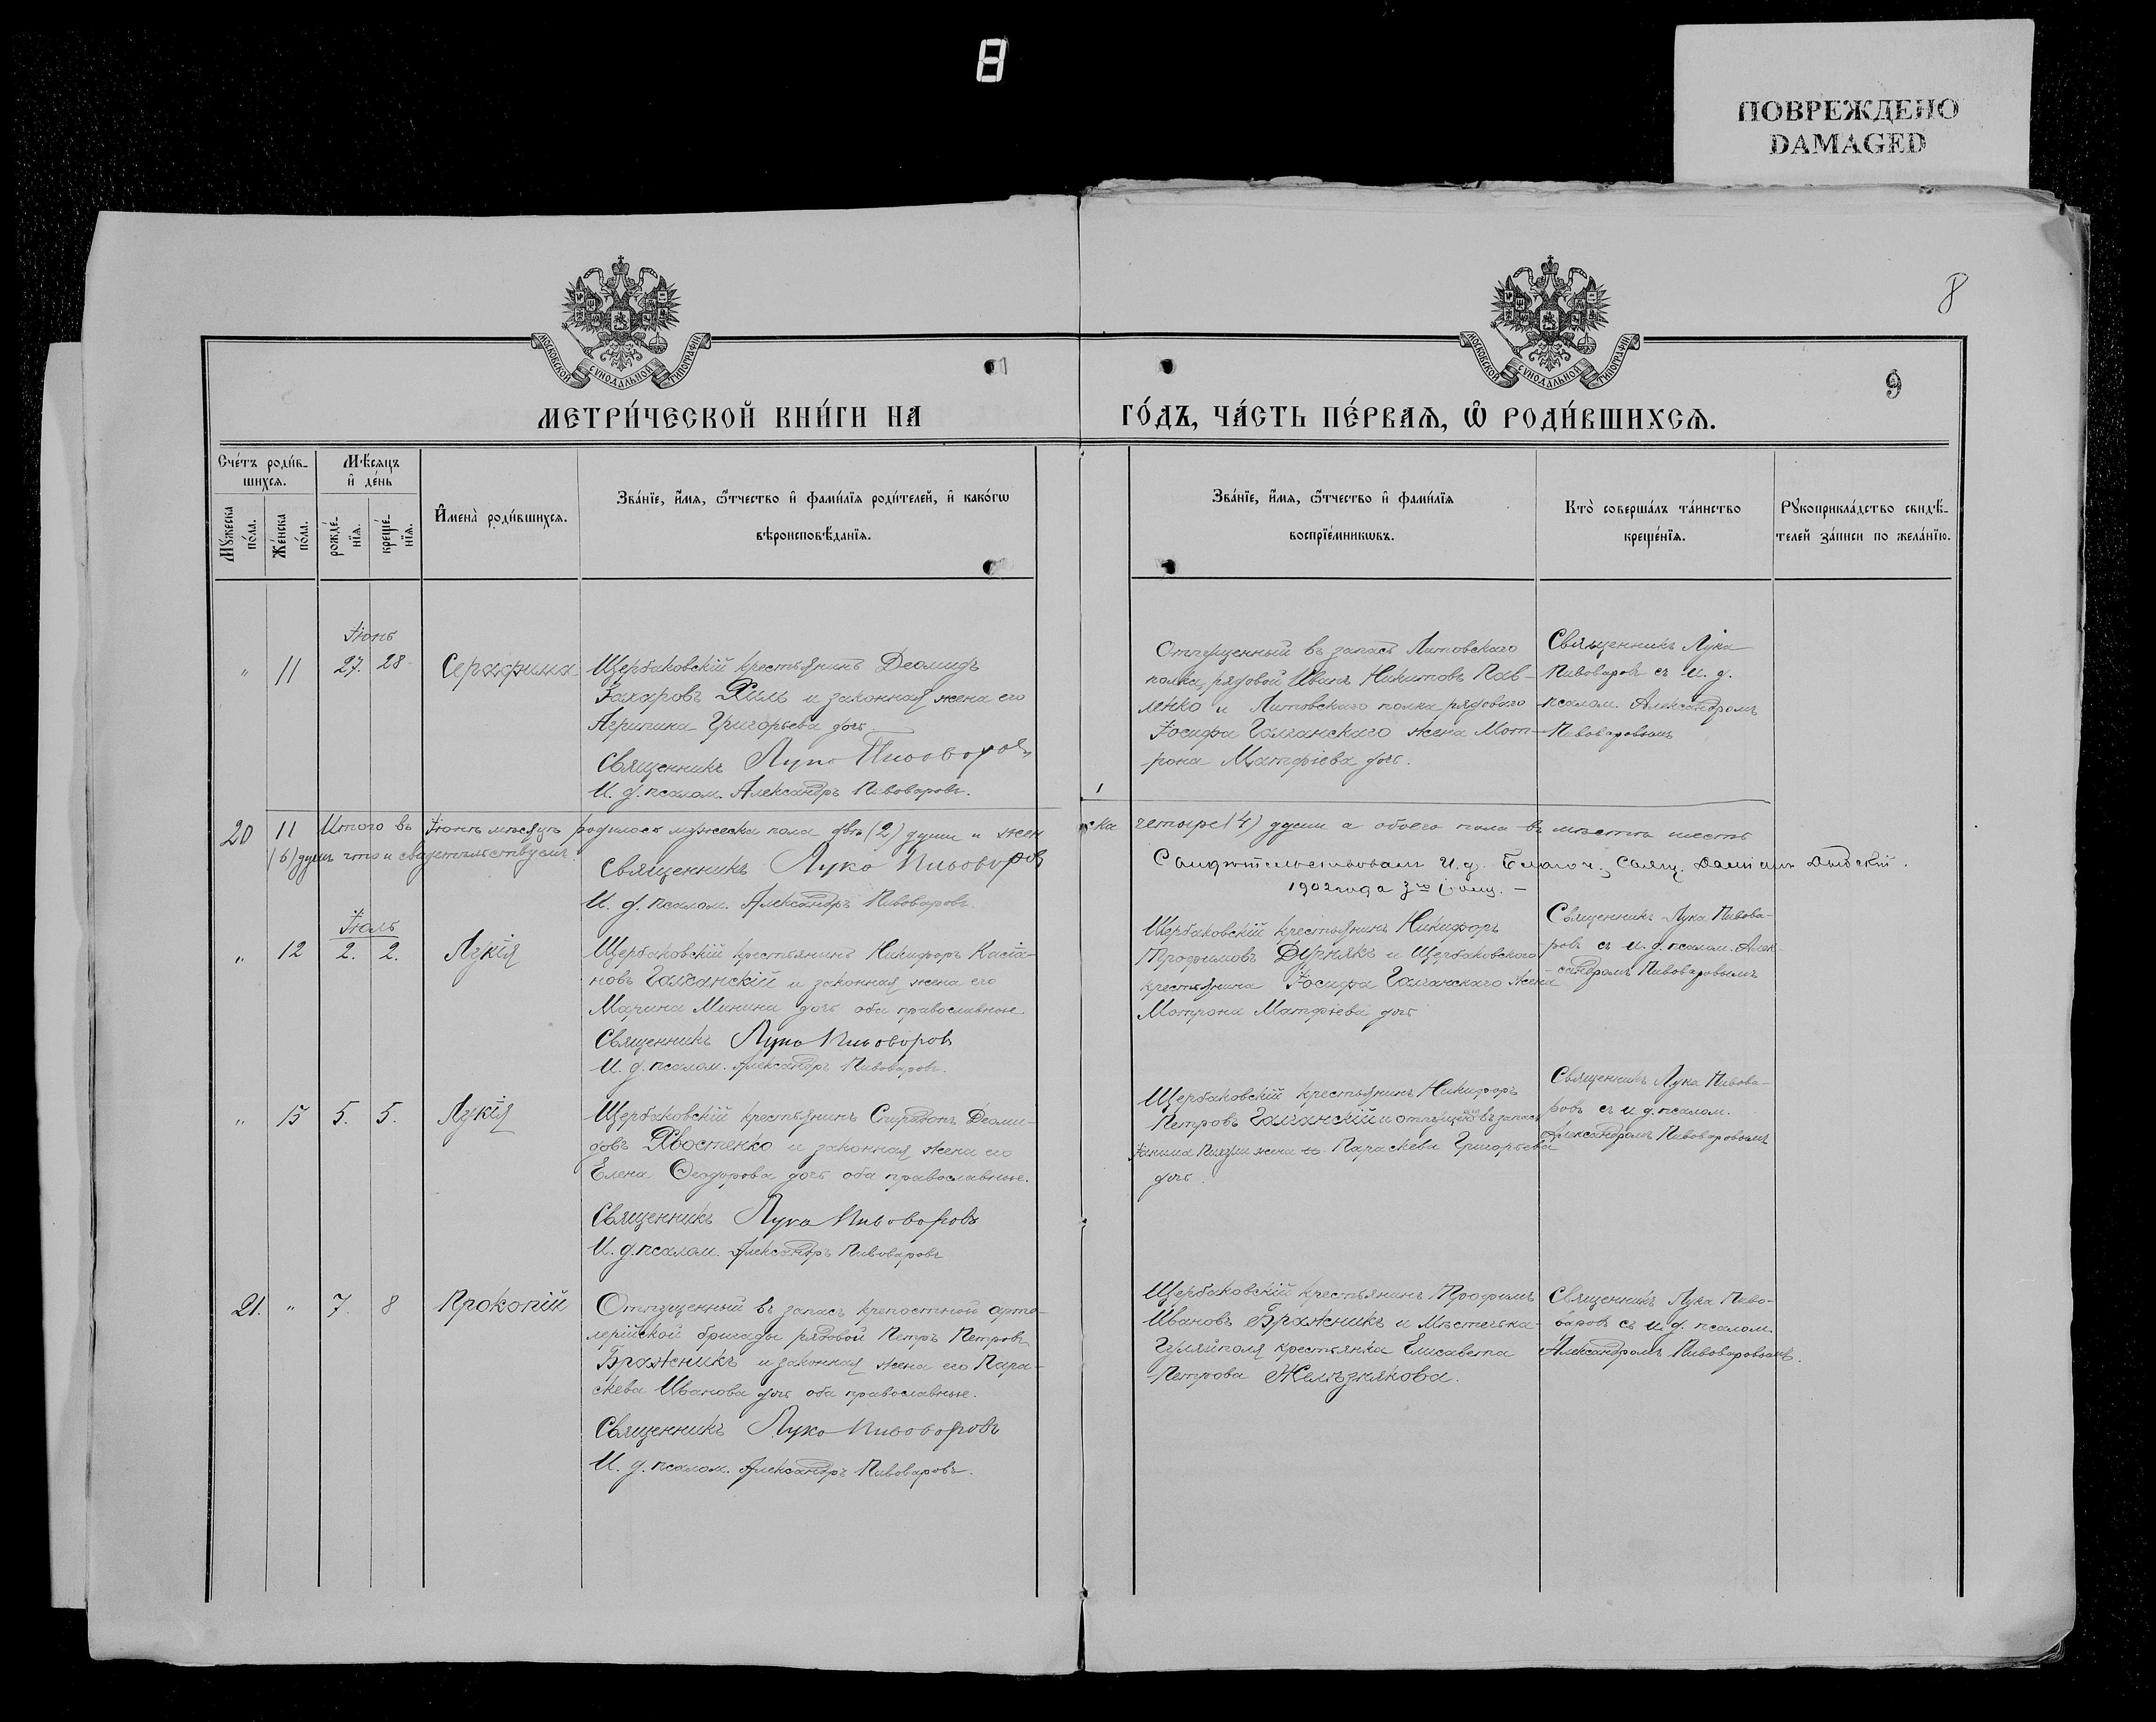 8
ПОВРЕЖДЕНО
DAMAGED
8
9
МОСКОВСКОЙ СѴНОДАЛЬНОЙ ТИПОГРАФІИ
МОСКОВСКОЙ СѴНОДАЛЬНОЙ ТИПОГРАФІИ
МЕТРИ́ЧЕСКОЙ КНИ́ГИ НА
ГО́ДЪ, ЧА́СТЬ ПЕ́РВАѦ, Ѽ РОДИ́ВШИХСѦ.
Сче́тъ роди́в-
шихсѧ.
Мꙋ́жеска
по́ла.
Же́нска
по́ла.
Мѣ́сѧцъ
и҆ де́нь
рожде́-
нїѧ.
креще́-
нїѧ.
И҆мена̀ роди́вшихсѧ.
Зва́нїе, и҆́мѧ, ѻ҆́тчество и҆ фами́лїѧ роди́телей, и҆ како́гѡ
вѣроисповѣ́данїѧ.
Зва́нїе, и҆́мѧ, ѻ҆́тчество и҆ фами́лїѧ
воспрїе́мникѡвъ.
Кто̀ соверша́лъ та́инство
креще́нїѧ.
Рꙋкоприкла́дство свидѣ́-
телей за́писи по жела́нїю.
Іюнь
" 11 27. 28 Серафима
Щербаковскій крестьянинъ Деомидъ
Захаровъ Хиль и законная жена его
Агрипина Григорьева дочь
Священникъ Лука Пивоваровъ
И. д. псалом. Александръ Пивоваровъ.
Отпущенный въ запасъ Литовскаго
полка, рядовой Иванъ Никитовъ Пав-
ленко и Литовскаго полка рядоваго
Іосифа Галганскаго жена Мот-
рона Матфіева дочь.
Священникъ Лука
Пивоваровъ съ И. д.
псалом. Александромъ
Пивоваровымъ
20 11 Итого въ Іюнѣ мѣсяцѣ родилось мужеска пола двѣ (2) души и жен
ска четыре (4) души а обоего пола въ мѣстѣ шесть
(6) душъ что и свидетельствуемъ.
Священникъ Лука Пивоваровъ
И. д. псалом. Александръ Пивоваровъ.
И. д. Благоч. Свящ.
1902 года
Іюль
" 12 2. 2. Лукія
Щербаковскій крестьянинъ Никифоръ Касіа-
новъ Галганскій и законная жена его
Марина Минина дочь оба православные.
Священникъ Лука Пивоваровъ
И. д. псалом. Александръ Пивоваровъ.
Щербаковскій крестьянинъ Никифоръ
Трофимовъ Дурнякъ и Щербаковскаго
крестьянина Іосифа Галганскаго жена
Матрона Матфіева дочь
Священникъ Лука Пивова-
ровъ съ И. д. псалом. Алек-
сандромъ Пивоваровымъ
" 15 5. 5. Лукія
Щербаковскій крестьянинъ Спиридонъ Деоми-
довъ Хвостенко и законная жена его
Елена Феодорова дочь оба православные.
Священникъ Лука Пивоваровъ
И. д. псалом. Александръ Пивоваровъ
Щербаковскій крестьянинъ Никифоръ
Петровъ Галганскій и въ запасъ
жена Параскева Григорьева
дочь.
Священникъ Лука Пивова-
ровъ съ И. д. псалом.
Александромъ Пивоваровымъ
21. " 7. 8 Прокопій
Отпущенный въ запасъ крепостной арти-
лерійской бригады рядовой Петръ Петровъ
Бражникъ и законная жена его Пара-
скева Иванова дочь оба православные.
Священникъ Лука Пивоваровъ
И. д. псалом. Александръ Пивоваровъ.
Щербаковскій крестьянинъ Трофимъ
Ивановъ Бражникъ и мѣстечка
Гуляйполя крестьянка Елисавета
Петрова Желѣзнякова.
Священникъ Лука Пиво-
варовъ съ И. д. псалом.
Александромъ Пивоваровымъ.